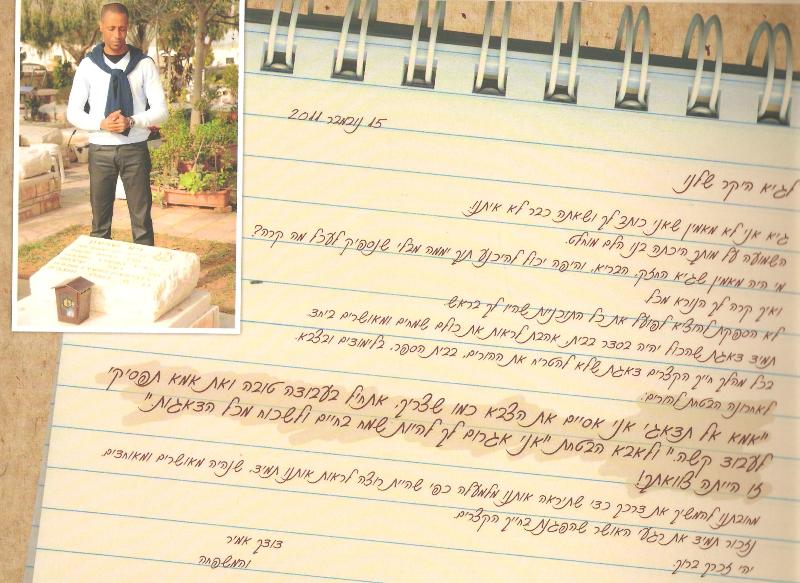 15 נובמבר 2011
לגיא היקר שלנו
גיא אני לא מאמין שאני כותב לך ושאתה כבר לא איתנו.
השמועה על מותך היכתה בנו הלם מוחלט.
מי היה מאמין שגיא החזק, הבריא, והיפה יכול להיכנע תוך יממה מבלי שנספיק לעכל מה קרה?
ואיך קרה לך הנורא מכל
לא הספקת להוציא לפועל את כל התוכניות שהיו לך בראש
תמיד דאגת שהכול יהיה בסדר בבית, אהבת לראות את כולם שמחים ומאושרים ביחד.
בכל מהלך חייך הקצרים דאגת שלא להטריח את ההורים, בבית הספר, בלימודים ובצבא.
לאחרונה הבטחת להורים:
"אמא אל תדאגי אני אסיים את הצבא כמו שצריך, אתחיל בעבודה טובה ואת אמא תפסיקי
לעבוד קשה." ולאבא הבטחת "אני אגרום לך להיות שמח בחיים ולשכוח מכל הדאגות."
זו הייתה צוואתך!
מחובתנו להמשיך את דרכך כדי שתיראה אותנו מלמעלה כפי שהיית רוצה לראות אותנו תמיד, שנהיה מאושרים ומאוחדים.
נזכור תמיד את רגעי האושר שהפגנת בחייך הקצרים.
יהי זכרך ברוך.
דודך אמיר
והמשפחה